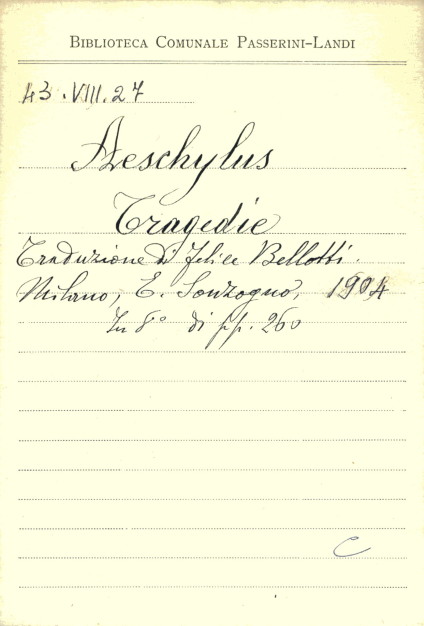 BIBLIOTECA COMUNALE PASSERINI-LANDI
43.VIII.27
Aeschylus
Tragedie
Traduzione di Felice Bellotti.
Milano, E. Sonzogno, 1904
In 8° di pp. 260
C